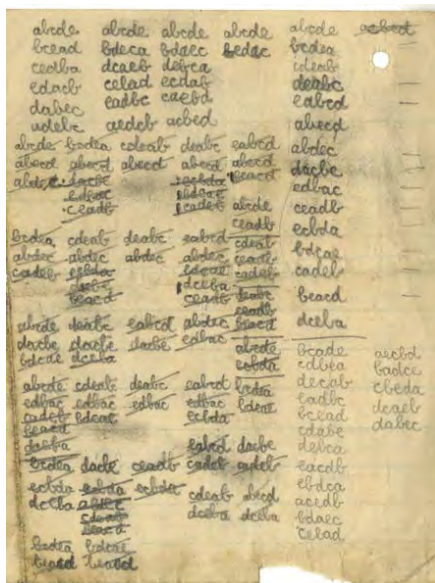 abcde abcde abcde abcde abcde acbed
bcead bdeca bdaec bedac bcdea
cedba dcaeb debca cdeab
edacb celad ecdab deabc
dabec eadbc caebd eabcd
aedcb acbed abecd
abcde bcdea cdeab deabc eabcd abdec
abecd abecd abecd abecd abecd dacbe
abdec dacbe ecbda beacd edbac
bdcae bdcae ceadb
ceadb cadeb abcde ecbda
ceadb bdcae
bcdea cdeab deabc eabcd cdeab cadeb
abdec abdec abdec abdec ceadb
cadeb ecbda bdcae cadeb beacd
dacbe dceba deabc
beacd ceadb ceadb dceba
abcde deabc eabcd abdec beacd
dacbe dacbe dacbe edbac abcde bcade aecbd
bdcae dceba ecbda cdbea badce
abcde cdeab deabc eabcd bcdea decab cbeda
edbac edbac edbac edbac bdcae eadbc dcaeb
cadeb bdcae ecbda bcead dabec
beacd cdabe
dceba eabcd dacbe debca
bcdea dacbe ceadb cadeb cadeb eacdb
ecbda ecbda ecbda cdeab abecd ebdca
dceba abdec dceba dceba acedb
cdeab bdaec
beacd celad
bcdea bdcae
beacd beacd